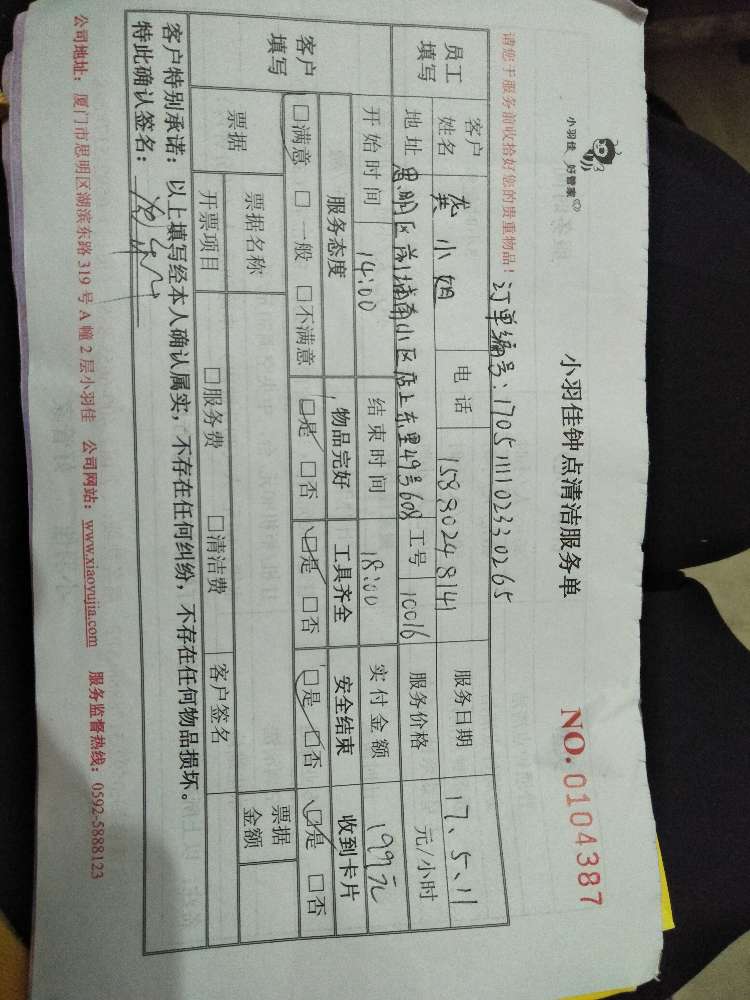 小羽佳 好管家
小羽佳钟点清洁服务单
NO. 0104387
请您于服务前收拾好您的贵重物品！
订单编号：170511110233 0265
员工填写
客户姓名 龚小姐 电话 15880248141 服务日期 17、5、11
地址 思明区 南小区店上东里49号608 工号 10016 服务价格 元/小时
开始时间 14:00 结束时间 18:00 实付金额 199元
客户填写
服务态度 物品完好 工具齐全 安全结束 收到卡片
□满意 □一般 □不满意 □是 □否 □是 □否 □是 □否 □是 □否
票据 票据名称 票据金额
开票项目 □服务费 □清洁费 客户签名
客户特别承诺：以上填写经本人确认属实，不存在任何纠纷，不存在任何物品损坏。
特此确认签名：
公司地址：厦门市思明区湖滨东路319号A幢2层小羽佳 公司网站：www.xiaoyujia.com 服务监督热线：0592-5888123